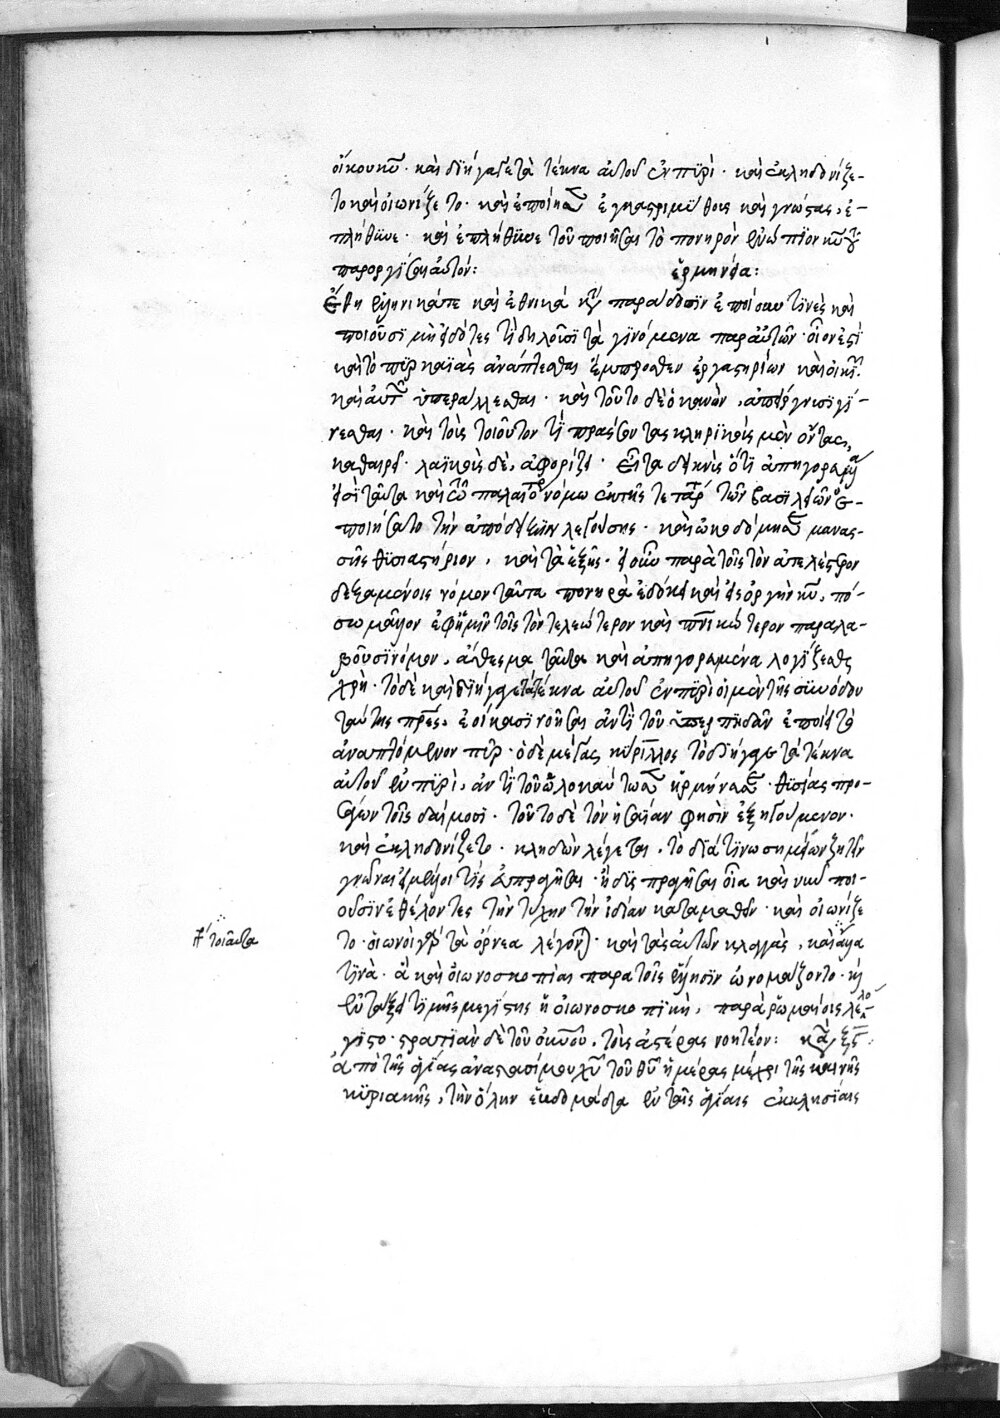 οἴκου κυ̅· καὶ διήγαγε τὰ τέκνα αὐτοῦ ἐν πυρί· καὶ ἐκληδονίζε-
το καὶ οἰωνίζετο· καὶ ἐποίησεν ἐγγαστριμύθους καὶ γνώστας, ἐ-
πλήθυνε· καὶ ἐπλήθυνε τοῦ ποιῆσαι τὸ πονηρὸν ἐνώπιον κυ̅ τοῦ
παροργίσαι αὐτόν: ἑρμηνεία:
Ἔθη ἑλληνικά τε καὶ ἐθνικὰ κατὰ παράδοσιν ἐποίουν τινὲς καὶ
ποιοῦσι μὴ εἰδότες τί δηλοῦσι τὰ γινόμενα παρ' αὐτῶν· οἷον ἐστὶ
καὶ τὸ πυρκαϊὰς ἀνάπτεσθαι ἔμπροσθεν ἐργαστηρίων καὶ οἰκιῶν·
καὶ αὐτὰς ὑπεράλλεσθαι· καὶ τοῦτο δὲ ὁ κανὼν, ἀπείργει μὴ γί-
νεσθαι· καὶ τοὺς τοιοῦτόν τι πράσσοντας κληρικοὺς μὲν ὄντας,
καθαιρεῖ· λαϊκοὺς δὲ, ἀφορίζει· Εἶτα δεικνὺς ὅτι ἀπηγορευμένα
εἰσὶ ταῦτα καὶ ἐν τῷ παλαιῷ νόμῳ ἐκ τῆς τετάρτης τῶν βασιλειῶν ἐ-
ποιήσατο τὴν ἀπόδειξιν λεγούσης· καὶ ᾠκοδόμησε μανασ-
σῆς θυσιαστήριον, καὶ τὰ ἑξῆς· εἰ οὖν παρὰ τοῖς τὸν ἀτελέστερον
δεξαμένοις νόμον ταῦτα πονηρὰ ἐδόκει καὶ εἰς ὀργὴν κυ̅, πό-
σῳ μᾶλλον ἐφ' ἡμῖν τοῖς τὸν τελεώτερον καὶ πν̅ικώτερον παραλα-
βοῦσι νόμον, ἄθεσμα ταῦτα καὶ ἀπηγορευμένα λογίζεσθαι
χρή· τὸ δὲ καὶ διήγαγε τὰ τέκνα αὐτοῦ ἐν πυρὶ οἱ μὲν τῆς συνόδου
ταύτης πρ̅ες, ἐοίκασι νοῆσαι ἀντὶ τοῦ ὑπερπηδᾶν ἐποίει τὸ
ἀναπτόμενον πῦρ· ὁ δὲ μέγας κύριλλος τὸ διήγαγε τὰ τέκνα
αὐτοῦ ἐν πυρὶ, ἀντὶ τοῦ ὡλοκαύτωσεν ἡρμήνευσε· θυσίας προ-
σάγων τοῖς δαίμοσι· τοῦτο δὲ τὸν ἡσαΐαν φησὶν ἐξηγούμενον·
καὶ ἐκληδονίζετο· κληδὼν λέγεται, τὸ διά τινων σημείων ζητεῖν
γνῶναι
οῦσιν ἐθέλοντες τὴν τύχην τὴν ἰδίαν καταμαθεῖν· καὶ οἰωνίζε
το· οἰωνοὶ γὰρ τὰ ὄρνεα λέγονται· καὶ τὰς αὐτῶν κλαγγὰς,
τινὰ· ἃ καὶ οἰωνοσκοπίαι παρὰ τοῖς ἕλλησιν ὠνομάζοντο·
ἐν τάξει τιμῆς μεγίστης ἡ οἰωνοσκοπικὴ, παρὰ ῥωμαίοις λελό-
γιστο· στρατιὰν δὲ τοῦ οὐνοῦ, τοὺς ἀστέρας νοητέον: καν̅ ξϛ̅
ἀπὸ τῆς ἁγίας ἀναστασίμου χυ̅ τοῦ θυ̅ ἡμέρας μέχρι τῆς καινῆς
κυριακῆς, τὴν ὅλην ἑβδομάδα ἐν ταῖς ἁγίαις ἐκκλησίαις
τοιαῦτα